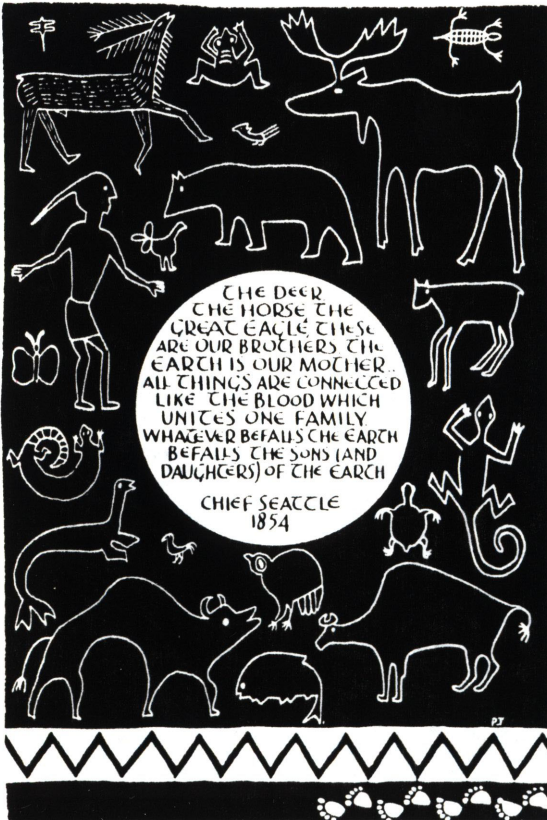 THE DEER
THE HORSE THE
GREAT EAGLE THESE
ARE OUR BROTHERS THE
EARTH IS OUR MOTHER..
ALL THINGS ARE CONNECTED
LIKE THE BLOOD WHICH
UNITES ONE FAMILY.
WHATEVER BEFALLS THE EARTH
BEFALLS THE SONS (AND
DAUGHTERS) OF THE EARTH
CHIEF SEATTLE
1854
PJ